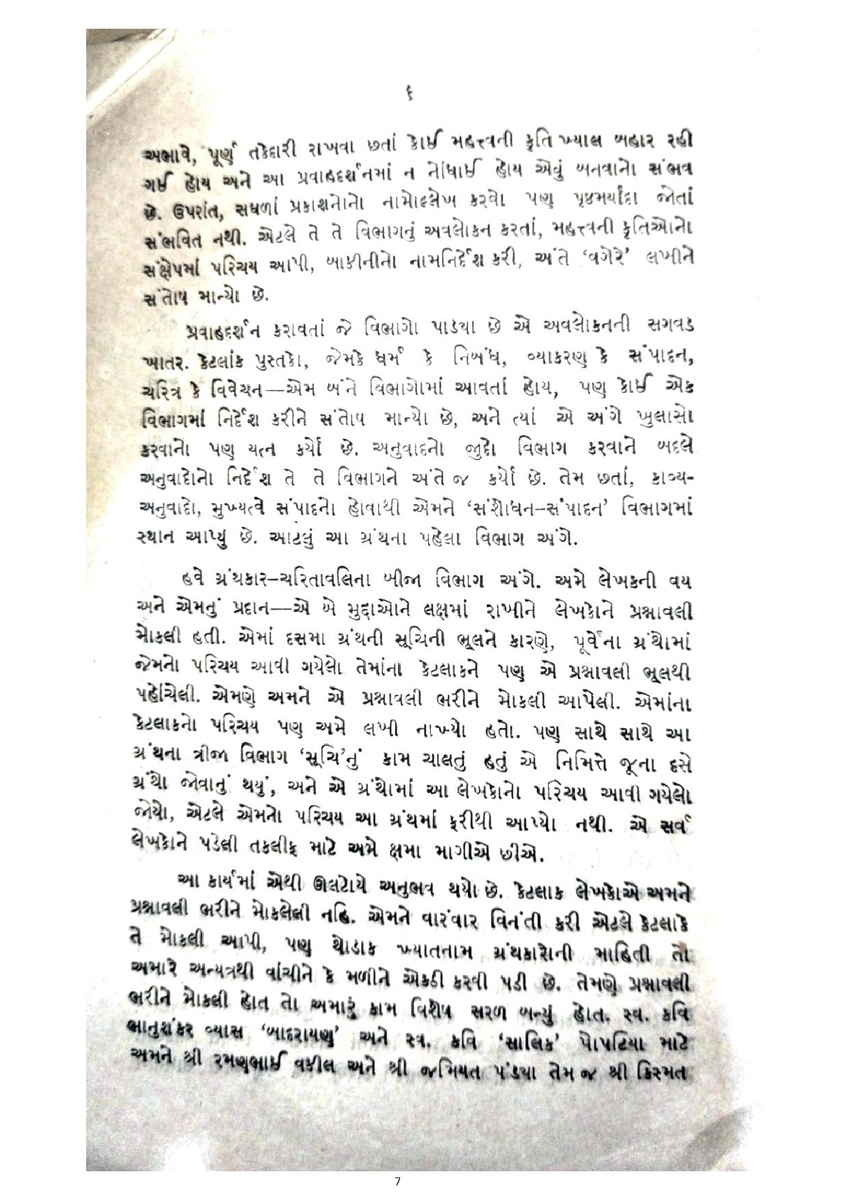 ૬
અભાવે, પૂર્ણ તકેદારી રાખવા છતાં કોઈ મહત્ત્વની કૃતિ ખ્યાલ બહાર રહી
ગઈ હોય અને આ પ્રવાહદર્શનમાં ન નોંધાઈ હોય એવું બનવાનો સંભવ
છે. ઉપરાંત, સઘળાં પ્રકાશનોનો નામોલ્લેખ કરવો પણ પૃષ્ઠમર્યાદા જોતાં
સંભવિત નથી. એટલે તે તે વિભાગનું અવલોકન કરતાં, મહત્ત્વની કૃતિઓનો
સંક્ષેપમાં પરિચય આપી, બાકીનીનો નામનિર્દેશ કરી, અંતે ‘વગેરે’ લખીને
સંતોષ માન્યો છે.
પ્રવાહદર્શન કરાવતાં જે વિભાગો પાડ્યા છે એ અવલોકનની સગવડ
ખાતર. કેટલાંક પુસ્તકો, જેમકે ધર્મ કે નિબંધ, વ્યાકરણ કે સંપાદન,
ચરિત્ર કે વિવેચન—એમ બંને વિભાગોમાં આવતાં હોય, પણ કોઈ એક
વિભાગમાં નિર્દેશ કરીને સંતોષ માન્યો છે, અને ત્યાં એ અંગે ખુલાસો
કરવાનો પણ યત્ન કર્યો છે. અનુવાદનો જુદો વિભાગ કરવાને બદલે
અનુવાદોનો નિર્દેશ તે તે વિભાગને અંતે જ કર્યો છે. તેમ છતાં, કાવ્ય-
અનુવાદો, મુખ્યત્વે સંપાદનો હોવાથી એમને ‘સંશોધન-સંપાદન’ વિભાગમાં
સ્થાન આપ્યું છે. આટલું આ ગ્રંથના પહેલા વિભાગ અંગે.
હવે ગ્રંથકાર-ચરિતાવલિના બીજા વિભાગ અંગે. અમે લેખકની વય
અને એમનું પ્રદાન—એ બે મુદ્દાઓને લક્ષમાં રાખીને લેખકોને પ્રશ્નાવલી
મોકલી હતી. એમાં દસમા ગ્રંથની સૂચિની ભૂલને કારણે, પૂર્વેના ગ્રંથોમાં
જેમનો પરિચય આવી ગયેલો તેમાંના કેટલાકને પણ એ પ્રશ્નાવલી ભૂલથી
પહોંચેલી. એમણે અમને એ પ્રશ્નાવલી ભરીને મોકલી આપેલી. એમાંના
કેટલાકનો પરિચય પણ અમે લખી નાખ્યો હતો. પણ સાથે સાથે આ
ગ્રંથના ત્રીજા વિભાગ ‘સૂચિ’નું કામ ચાલતું હતું એ નિમિત્તે જૂના દસે
ગ્રંથો જોવાનું થયું, અને એ ગ્રંથોમાં આ લેખકોનો પરિચય આવી ગયેલો
જોયો, એટલે એમનો પરિચય આ ગ્રંથમાં ફરીથી આપ્યો નથી. એ સર્વ
લેખકોને પડેલી તકલીફ માટે અમે ક્ષમા માગીએ છીએ.
આ કાર્યમાં એથી ઊલટોયે અનુભવ થયો છે. કેટલાક લેખકોએ અમને
પ્રશ્નાવલી ભરીને મોકલેલી નહિ. એમને વારંવાર વિનંતી કરી એટલે કેટલાકે
તે મોકલી આપી, પણ થોડાક ખ્યાતનામ ગ્રંથકારોની માહિતી તો
અમારે અન્યત્રથી વાંચીને કે મળીને એકઠી કરવી પડી છે. તેમણે પ્રશ્નાવલી
ભરીને મોકલી હોત તો અમારું કામ વિશેષ સરળ બન્યું હોત. સ્વ. કવિ
ભાનુશંકર વ્યાસ ‘બાદરાયણ’ અને સ્વ. કવિ ‘સાલિક’ પોપટિયા માટે
અમને શ્રી રમણભાઈ વકીલ અને શ્રી જમિયત પંડ્યા તેમ જ શ્રી કિસ્મત
7